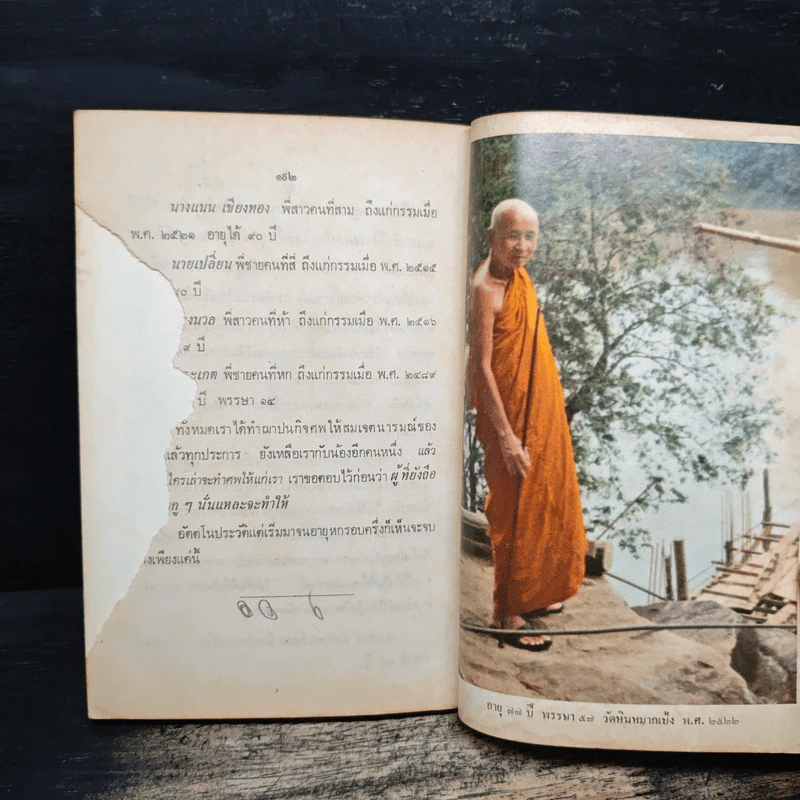 ๑๙๒
นางแนน เชียงทอง พี่สาวคนที่สาม ถึงแก่กรรมเมื่อ
พ.ศ. ๒๕๒๑ อายุได้ ๙๐ ปี
นายเปลี่ยน พี่ชายคนที่สี่ ถึงแก่กรรมเมื่อ พ.ศ. ๒๕๑๕
๐ ปี
นวล พี่สาวคนที่ห้า ถึงแก่กรรมเมื่อ พ.ศ. ๒๕๑๖
๙ ปี
เกต พี่ชายคนที่หก ถึงแก่กรรมเมื่อ พ.ศ. ๒๔๘๙
ปี พรรษา ๑๔
ทั้งหมดเราได้ทำฌาปนกิจศพให้สมเจตนารมณ์ของ
แล้วทุกประการ ยังเหลือเรากับน้องอีกคนหนึ่ง แล้ว
ใครเล่าจะทำศพให้แก่เรา เราขอตอบไว้ก่อนว่า ผู้ที่ยังถือ
กู ๆ นั่นแหละจะทำให้
อัตตโนประวัติแต่เริ่มมาจนอายุหกรอบครึ่งก็เห็นจะจบ
งเพียงแค่นี้
อายุ ๗๗ ปี พรรษา ๕๗ วัดหินหมากเป้ง พ.ศ. ๒๕๒๒